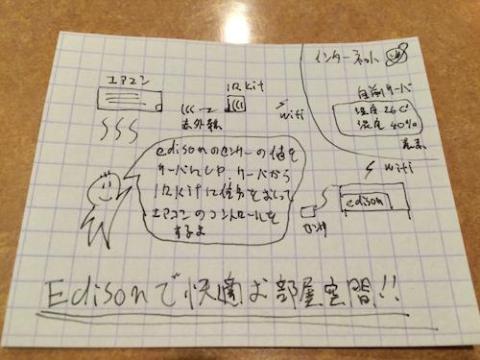 インターネット
エアコン
IRkit
自前サーバ
温度 26℃
湿度 40%
赤外線
wifi
表示
wifi
edison
センサ
edisonのセンサーの値を
サーバにUP、サーバから
IRkitに信号をおくって
エアコンのコントロールを
するよ
Edisonで快適お部屋空間!!